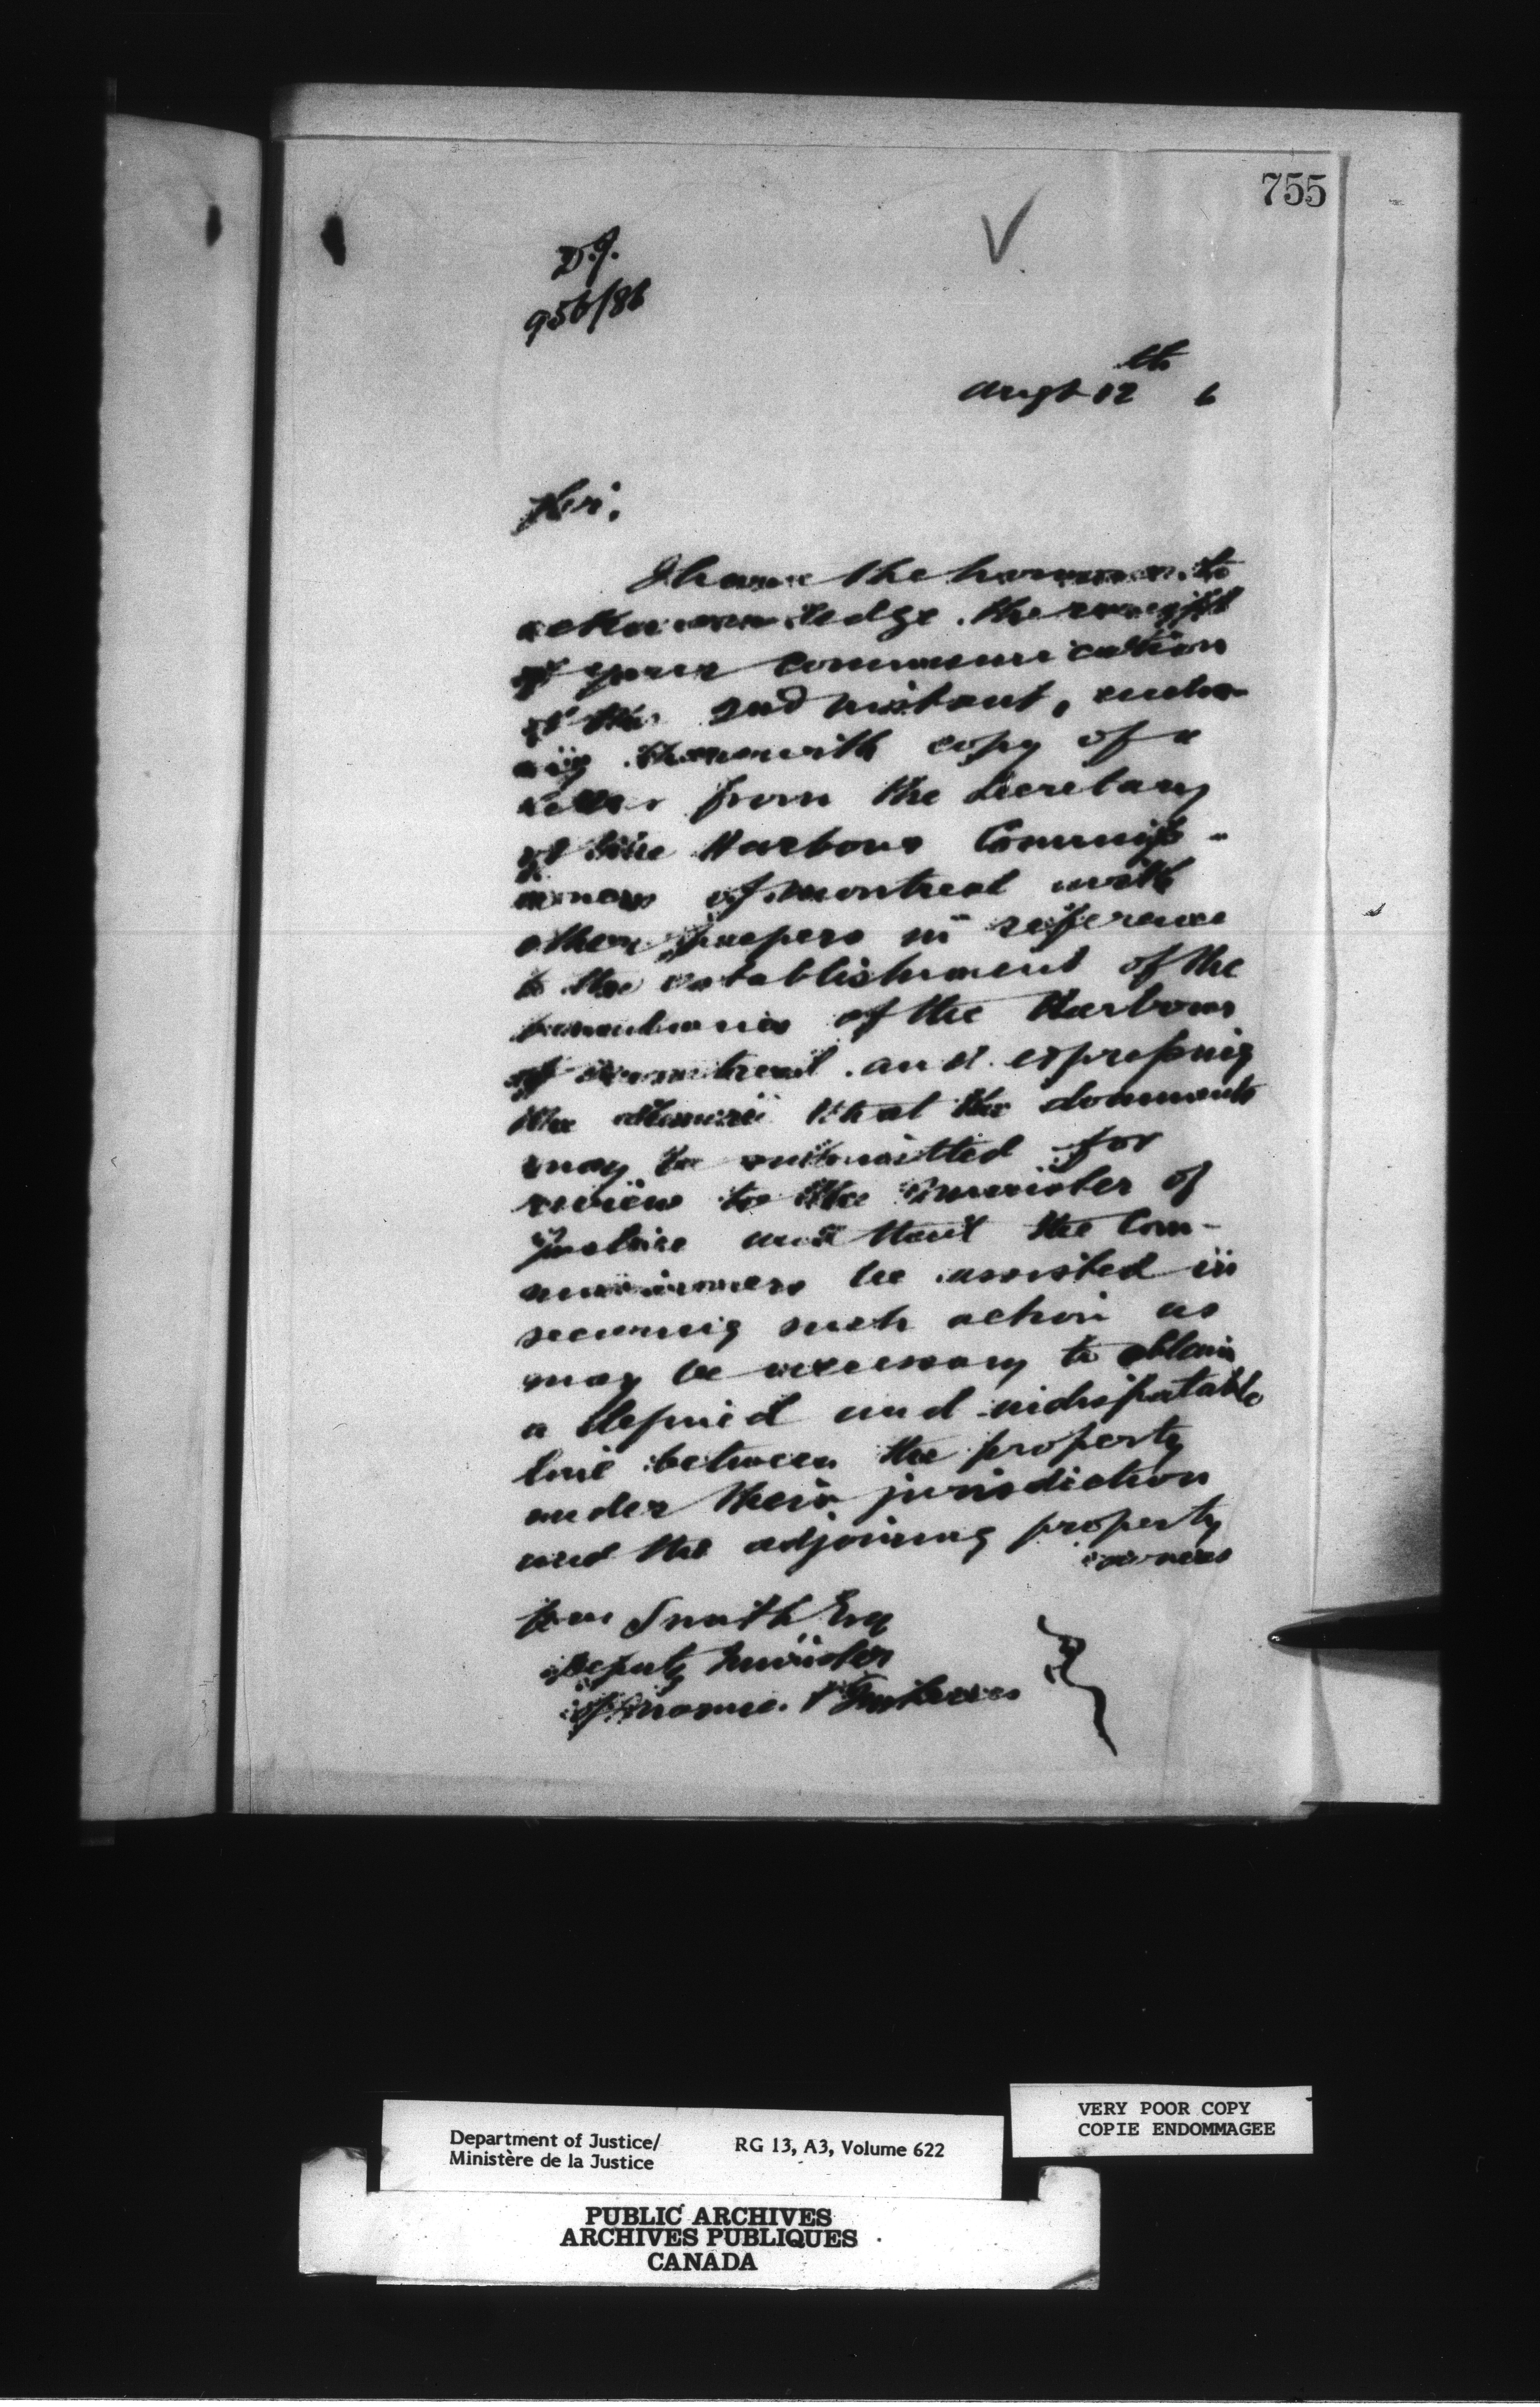 755
D.J.
956/86
Augt 12th 6
Sir,
I have the honour to
acknowledge the receipt
of your communication
of the 2nd instant, enclos-
ing therewith copy of a
letter from the Secretary
of the Harbour Commiss-
ioners of Montreal with
other papers in reference
to the establishment of the
boundaries of the Harbour
of Montreal and expressing
the desire that the documents
may be submitted for
review to the Minister of
Justice and that the Com-
missioners be assisted in
securing such action as
may be necessary to obtain
a defined and indisputable
line between the property
under their jurisdiction
and the adjoining property
owners
Wm Smith Esq
Deputy Minister
of Marine & Fisheries
Department of Justice/ RG 13, A3, Volume 622
Ministère de la Justice
VERY POOR COPY
COPIE ENDOMMAGEE
PUBLIC ARCHIVES
ARCHIVES PUBLIQUES
CANADA